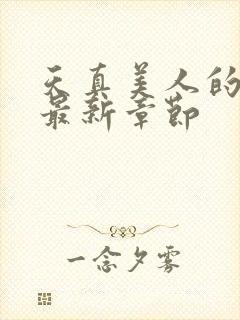 天真美人的
最新章节
一念夕雾